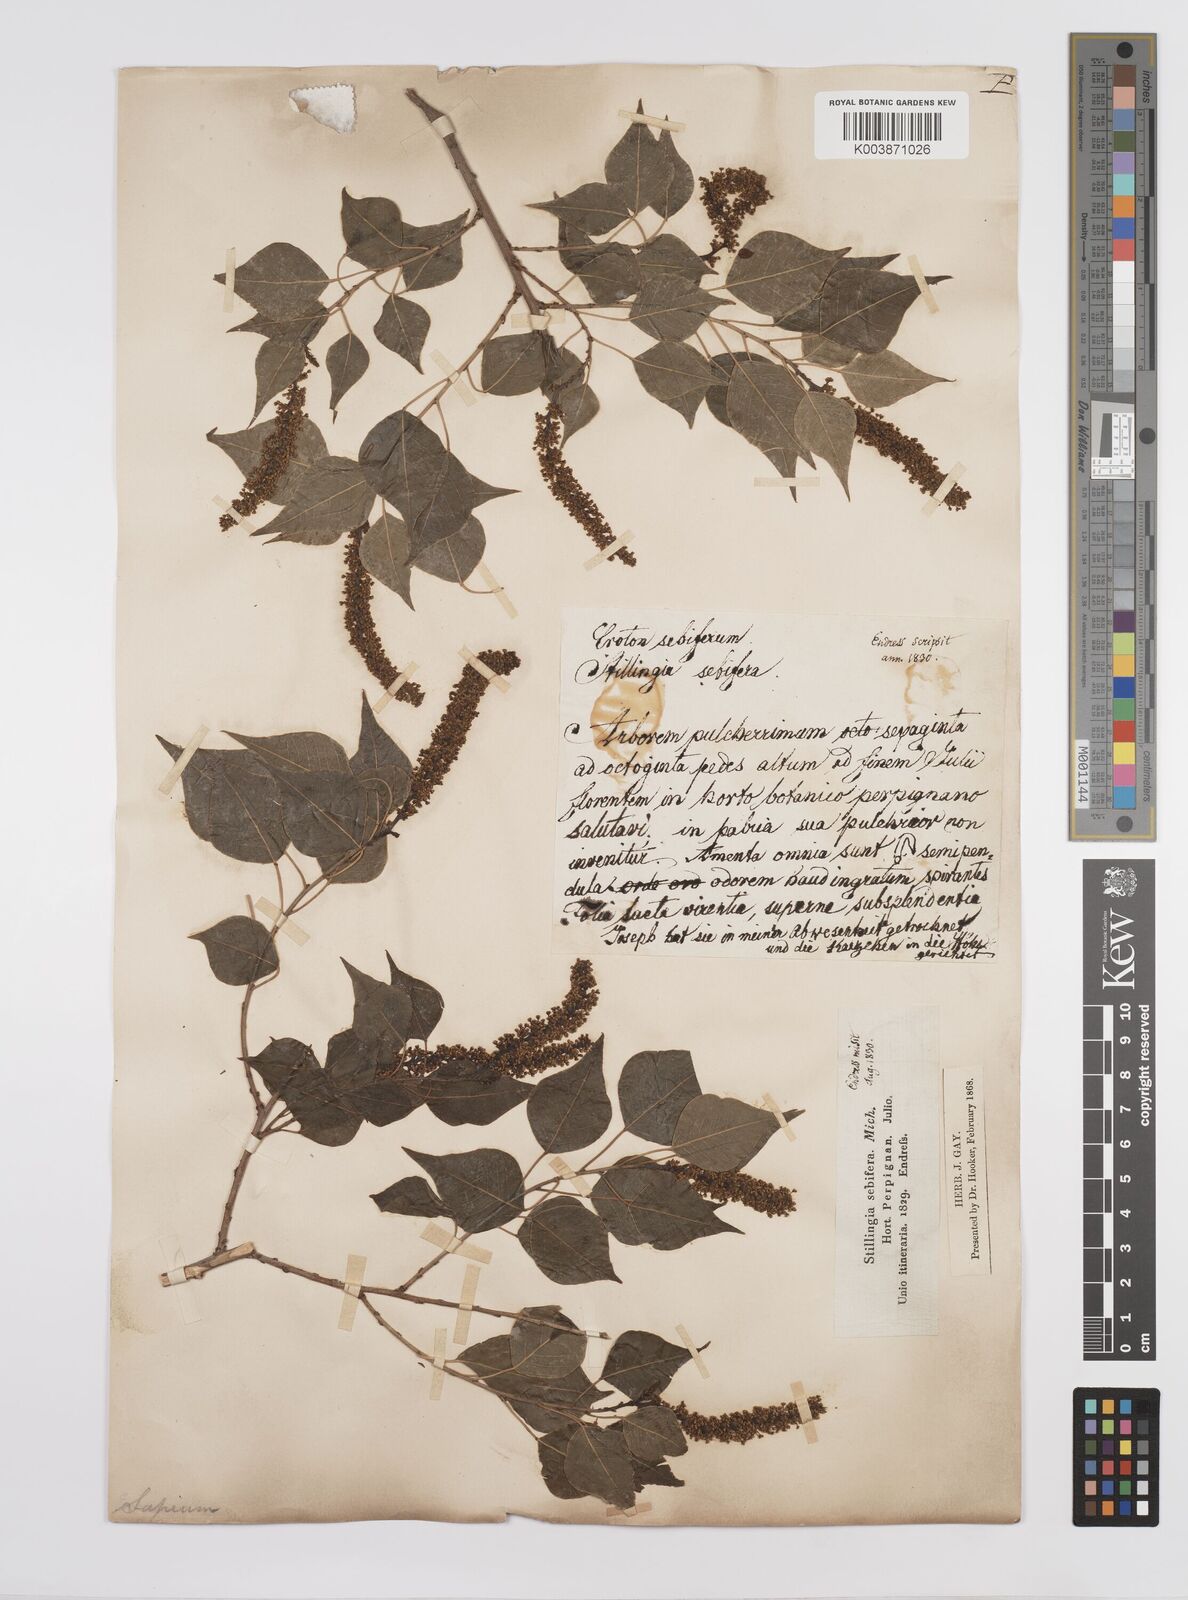 E
ROYAL BOTANIC GARDENS KEW
K003871026
Croton sebiferum.
Stillingia sebifera.
Endress scripsit
ann. 1830.
Arborem pulcherrimam octo-sepaginta
ad octoginta pedes altum ad finem Julii
florentem in horto botanico perpignano
salutavi. in patria sua pulchrior non
invenitur. Amenta omnia sunt semipen=
dula odorem haud ingratum spirantes
Folia laeta virentia, superne subsplendentia
Joseph hat sie in meiner Abwesenheit getrocknet
und die Kätzchen in die Höhe
gerichtet
Endress misit
aug. 1830.
Stillingia sebifera. Mich.
Hort. Perpignan. Julio.
Unio itineraria. 1829. Endreſs.
HERB. J. GAY.
Presented by Dr. Hooker, February 1868.
Sapium
inches
Density
Don Williams
M001144
cm
centimetres
Royal Botanic Gardens
Kew
copyright reserved
0 1 2 3 4 5 6 7 8 9 10
cm